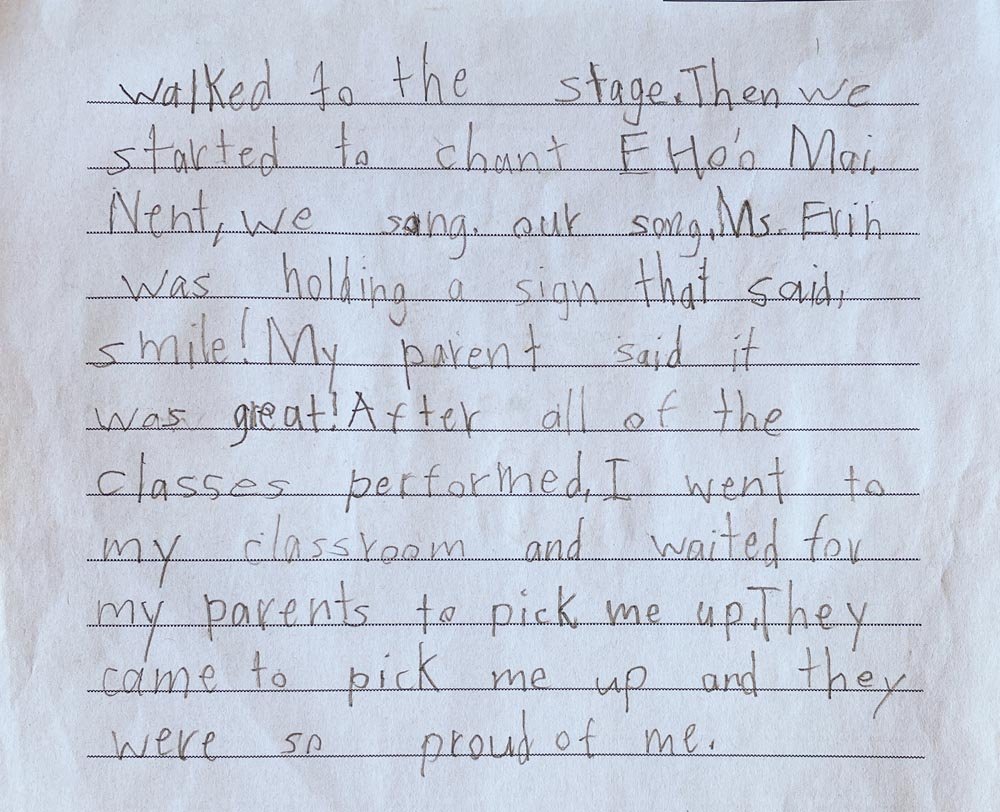 walked to the stage. Then we
started to chant E Ho'o Mai.
Nent, we sang. our song. Ms. Erin
was holding a sign that said,
smile! My parent said it
was great! After all of the
classes performed, I went to
my classroom and waited for
my parents to pick me up. They
came to pick me up and they
were so proud of me.